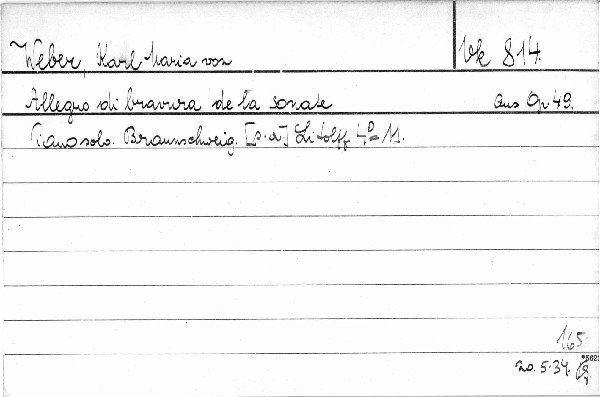 Weber, Karl Maria von Vk 814.
Allegro di bravura de la sonate Aus Op 49.
Pianosolo. Braunschweig. [s.a.] Litolff 4.° 11.
165.
20. 5. 34.